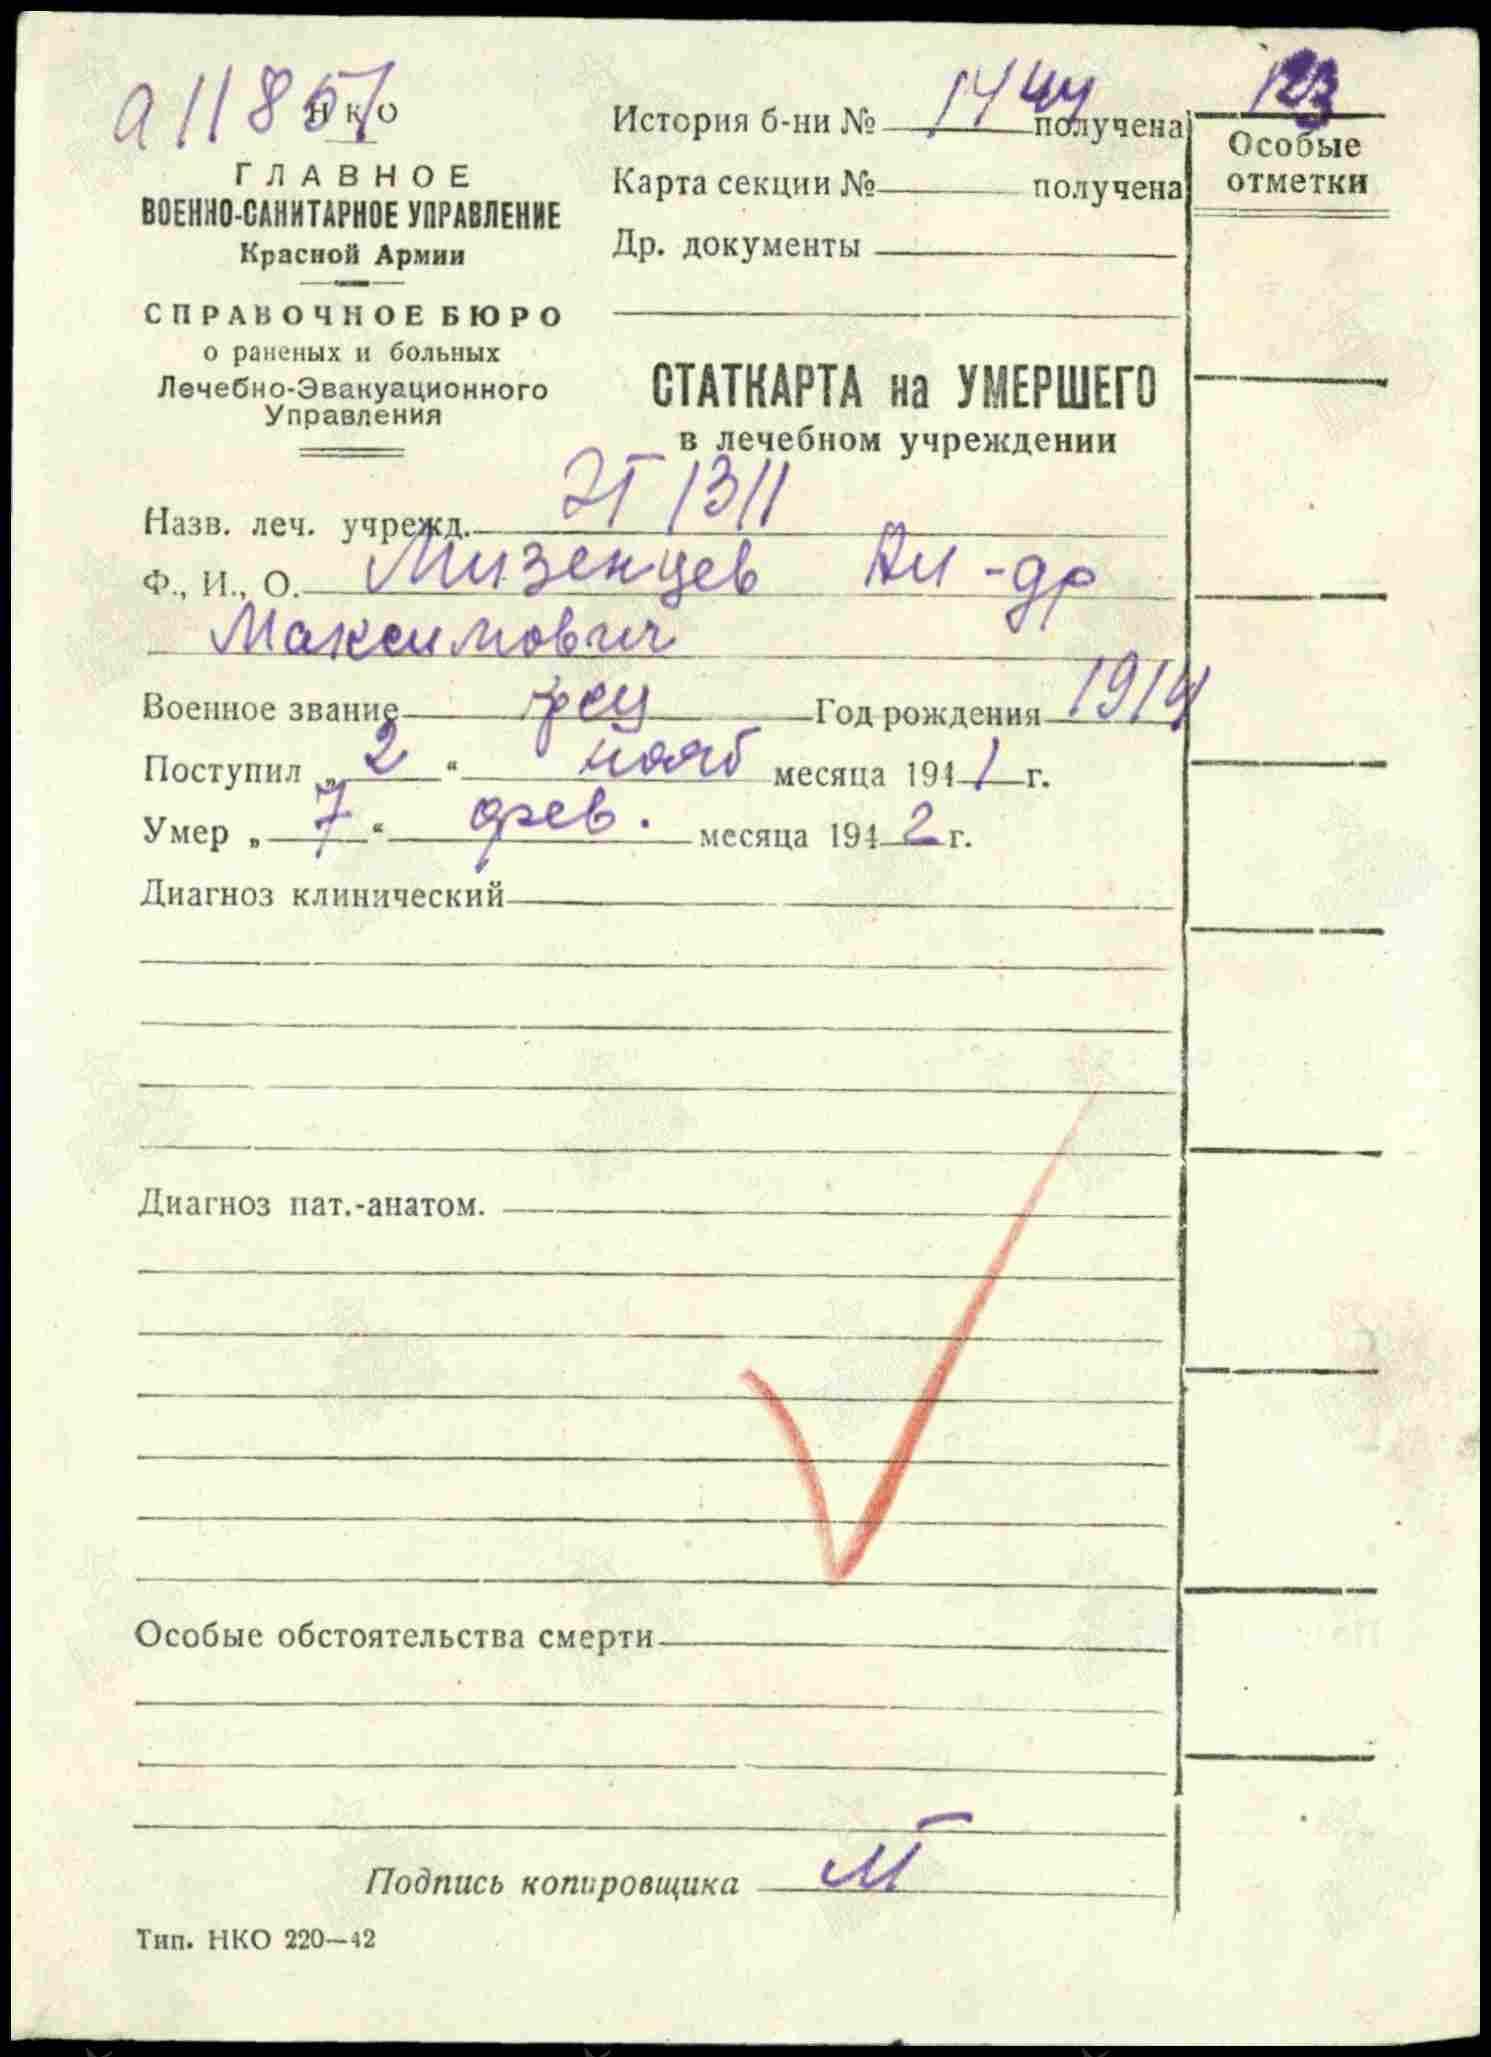 а11857
НКО
ГЛАВНОЕ
ВОЕННО-САНИТАРНОЕ УПРАВЛЕНИЕ
Красной Армии
СПРАВОЧНОЕ БЮРО
о раненых и больных
Лечебно-Эвакуационного
Управления
История б-ни № 1444 получена
Карта секции № получена
Др. документы
123
Особые
отметки
СТАТКАРТА на УМЕРШЕГО
в лечебном учреждении
Назв. леч. учрежд. ЭГ 1311
Ф., И., О. Мизенцев Ал-др
Максимович
Военное звание Год рождения 1914
Поступил „2“ нояб месяца 1941 г.
Умер „7“ фев. месяца 1942 г.
Диагноз клинический
Диагноз пат.-анатом.
Особые обстоятельства смерти
Подпись копировщика
Тип. НКО 220—42